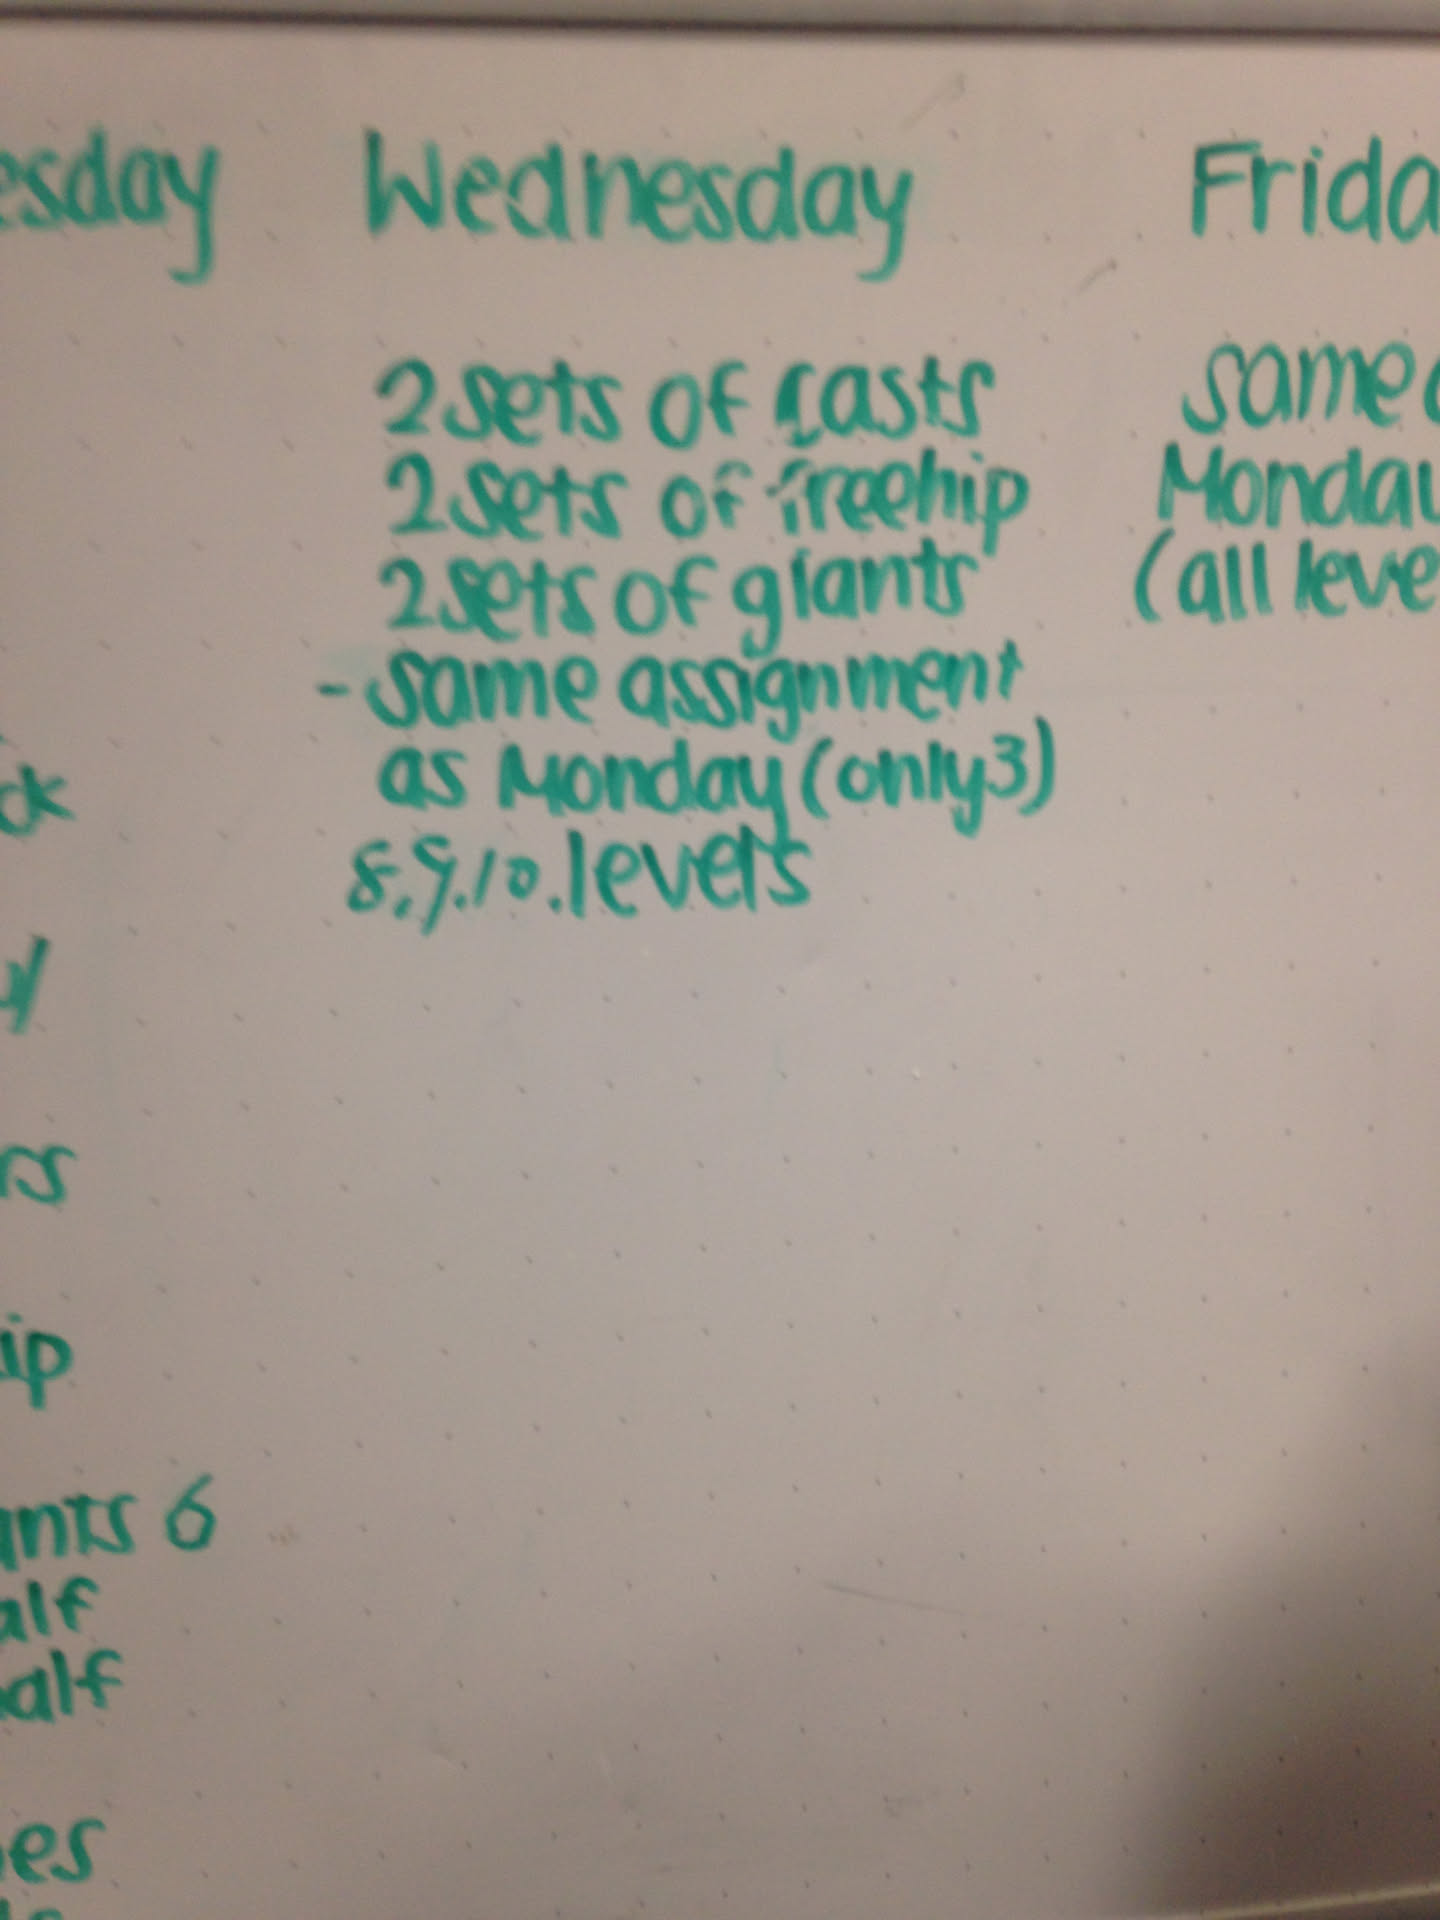 Wednesday
2 sets of casts
2 sets of freehip
2 sets of giants
- same assignment
as Monday (only 3)
8.9.10. levels
Frida
same
Monday
(all leve
esday
ck
ip
ants 6
alf
half
es